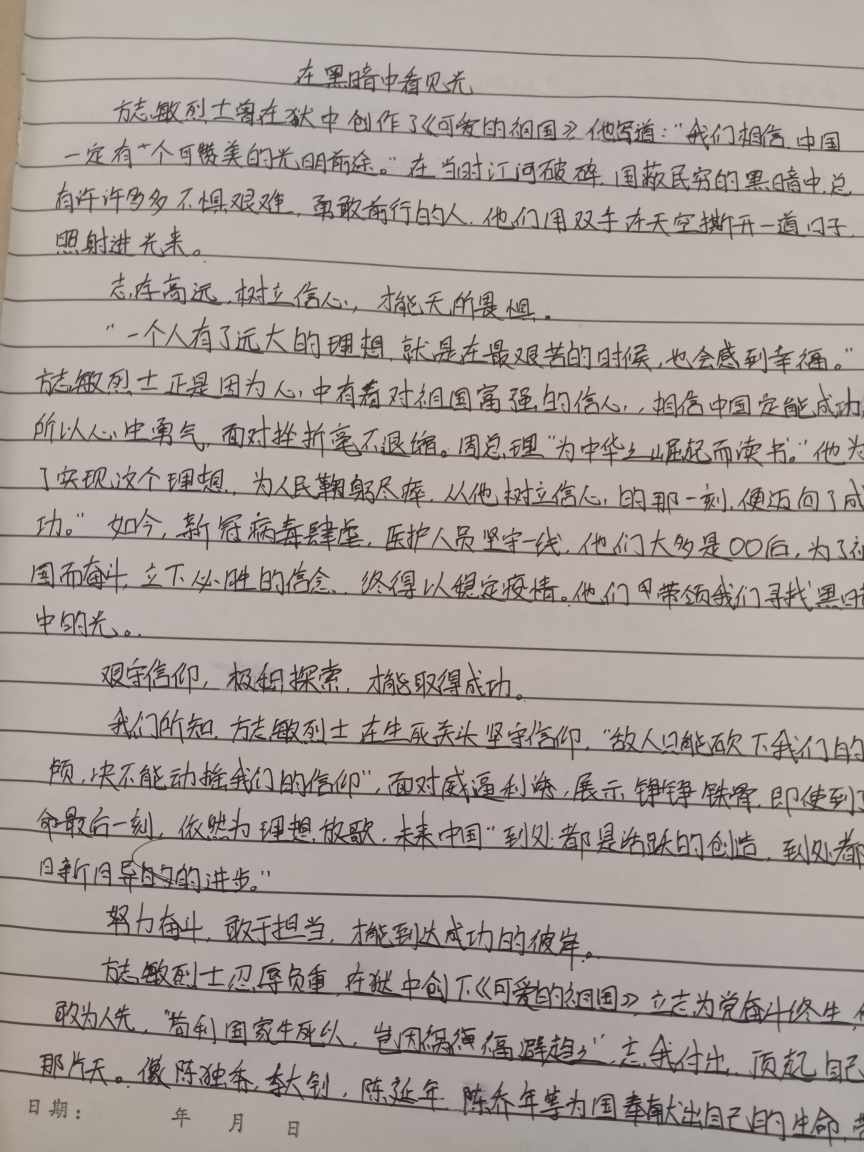 在黑暗中看见光
方志敏烈士曾在狱中创作了《可爱的祖国》他写道:"我们相信 中国
一定有一个可赞美的光明前途。"在当时江河破碎,国蔽民穷的黑暗中,总
有许许多多不惧艰难,勇敢前行的人,他们用双手在天空撕开一道口子,
照射进光来。
志存高远,树立信心,才能无所畏惧。
"一个人有了远大的理想,就是在最艰苦的时候,也会感到幸福。"
方志敏烈士正是因为心中有着对祖国富强的信心,相信中国定能成功,
所以心中勇气,面对挫折毫不退缩。周总理"为中华之崛起而读书。"他为
了实现这个理想,为人民鞠躬尽瘁,从他树立信心的那一刻,便迈向了成
功。"如今,新冠病毒肆虐,医护人员坚守一线,他们大多是00后,为了祖
国而奋斗,立下必胜的信念,终得以稳定疫情。他们 带领我们寻找黑暗
中的光。
艰守信仰,极细探索,才能取得成功。
我们所知,方志敏烈士在生死关头坚守信仰,"敌人只能砍下我们的
颅,决不能动摇我们的信仰",面对威逼利诱,展示铮铮铁骨,即使到了
命最后一刻,依然为理想放歌,未来中国"到处都是活跃的创造,到处都
日新月异的进步。"
努力奋斗,敢于担当,才能到达成功的彼岸。
方志敏烈士忍辱负重,在狱中创下《可爱的祖国》,立志为党奋斗终生,
敢为人先,"苟利国家生死以,岂因祸福避趋之",忘我付出,顶起自己
那片天。像陈独秀,李大钊,陈延年,陈乔年等为国奉献出自己的生命,
日期: 年 月 日